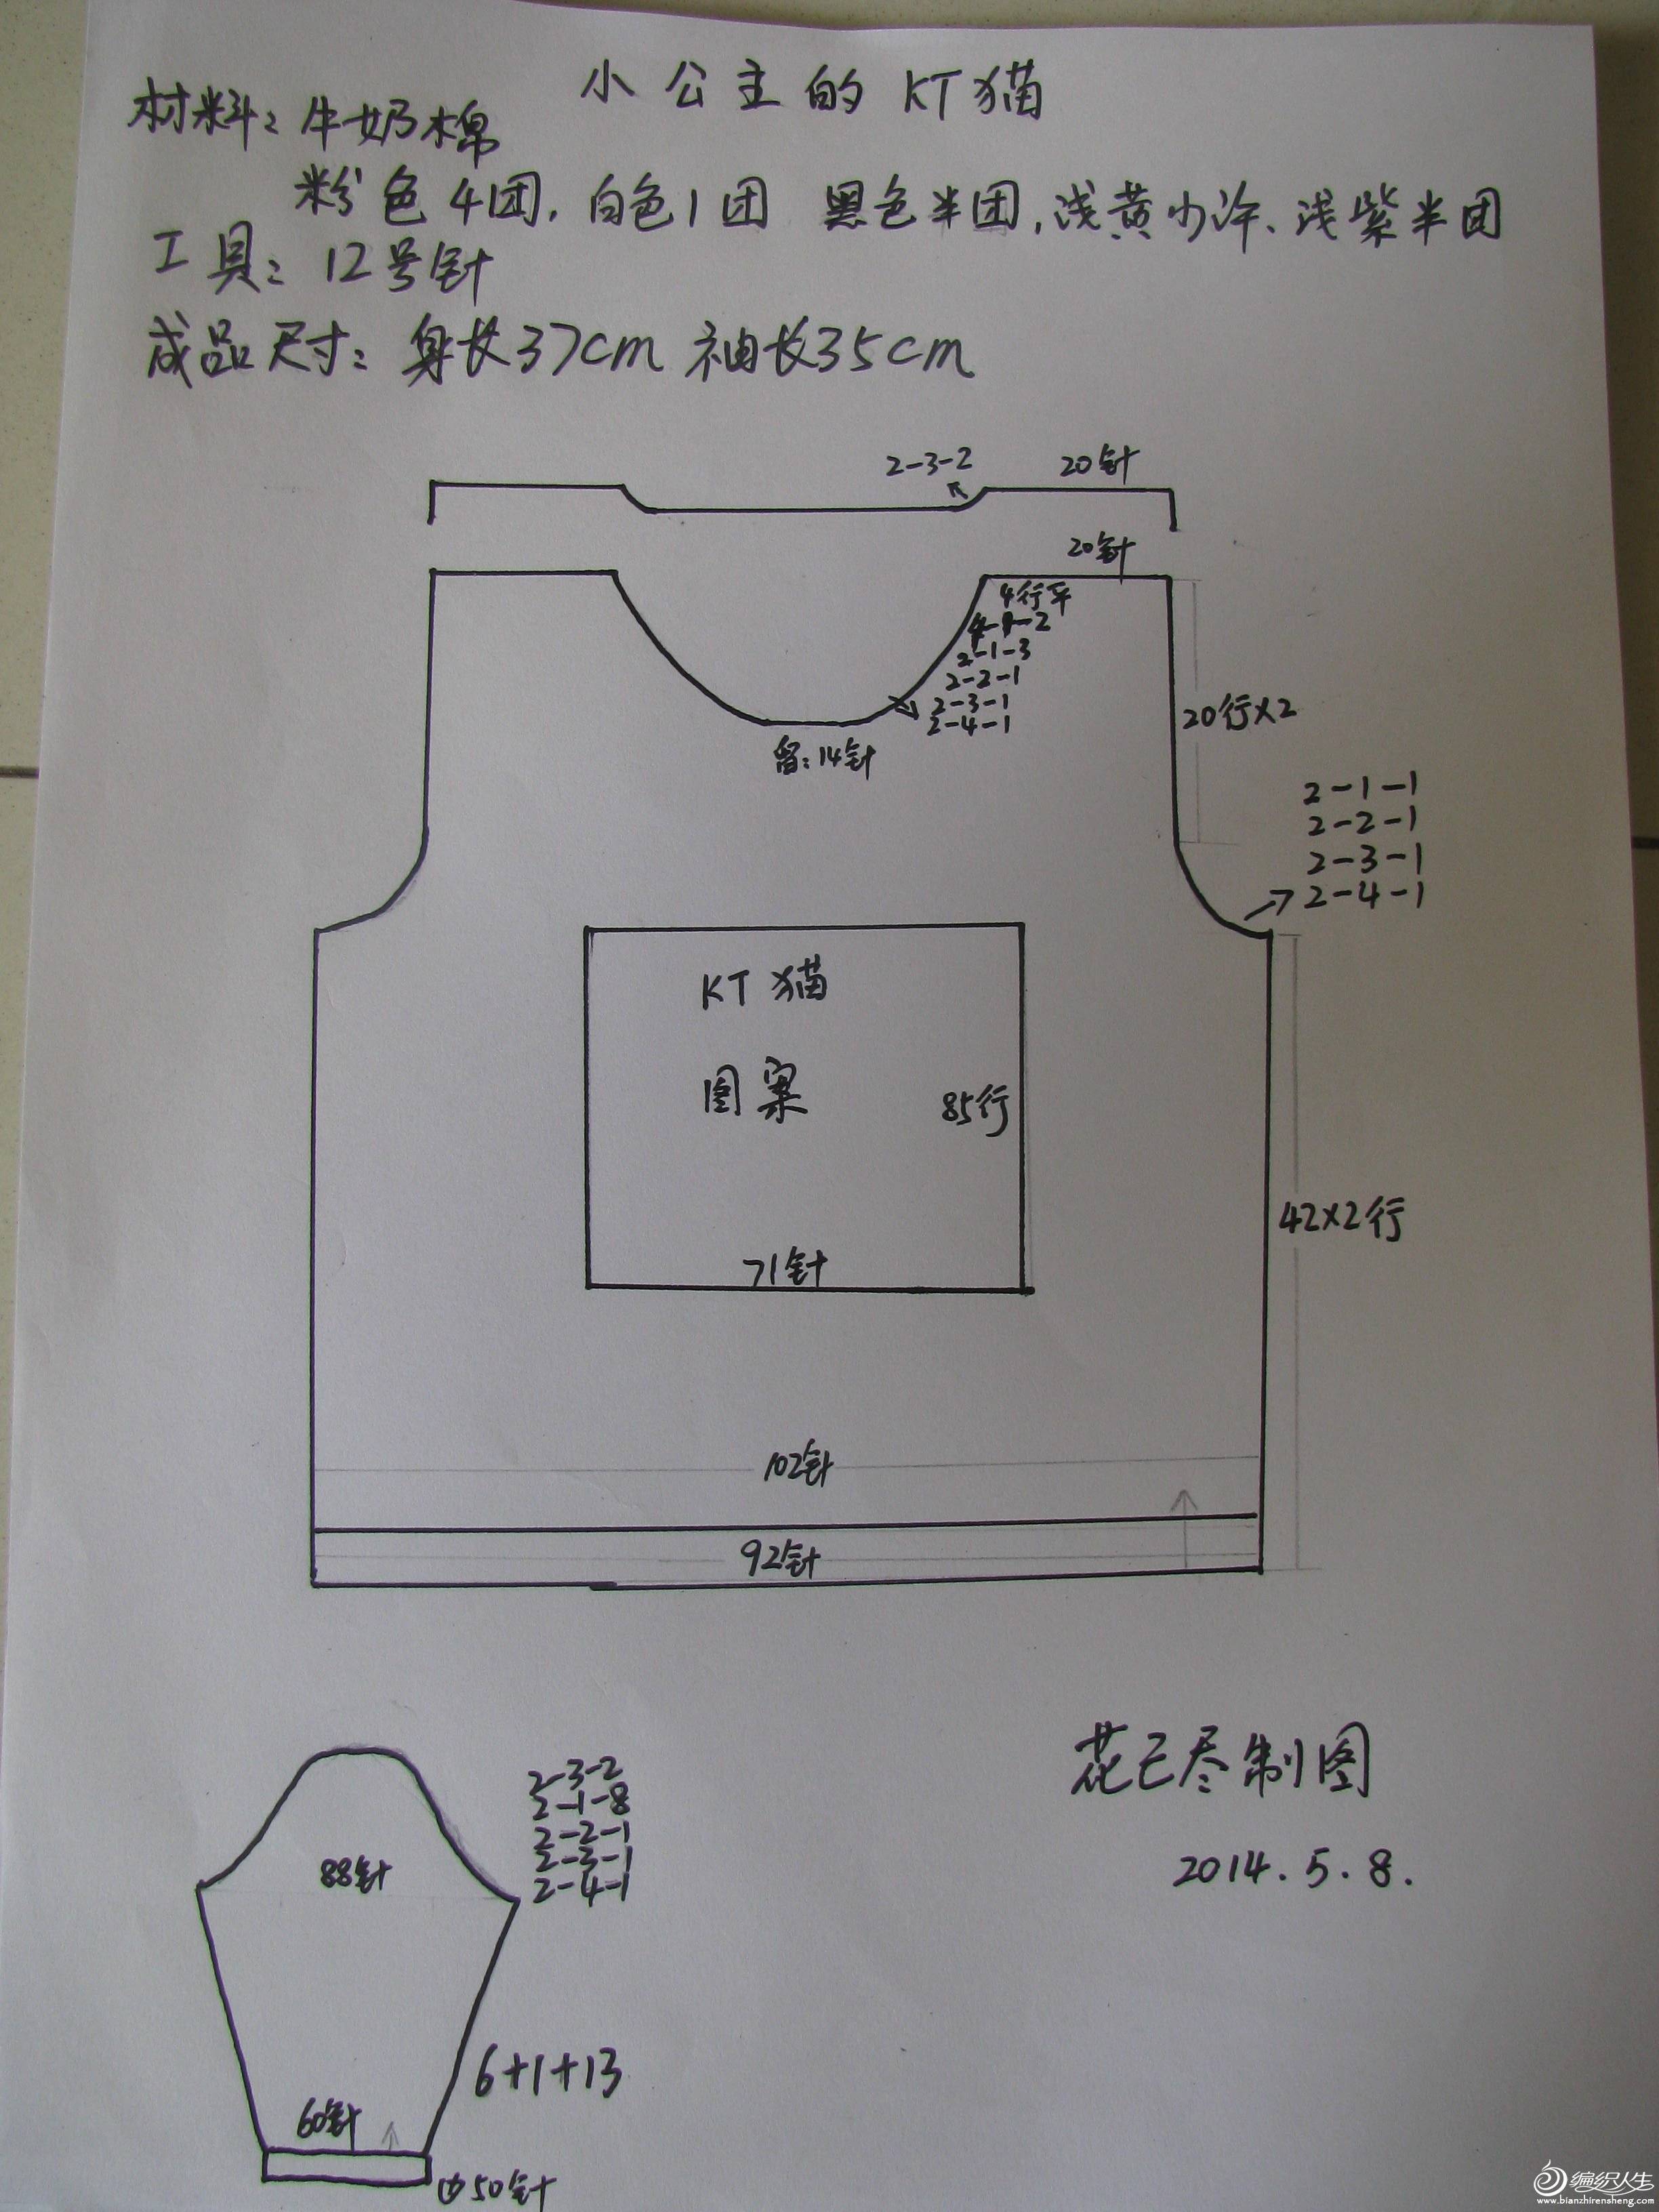 小公主的KT猫
材料：牛奶棉
粉色4团，白色1团 黑色半团，浅黄少许、浅紫半团
工具：12号针
成品尺寸：身长37cm 袖长35cm
2-3-2
20针
20针
4行平
4-1-2
2-1-3
2-2-1
2-3-1
2-4-1
留：14针
20行X2
2-1-1
2-2-1
2-3-1
2-4-1
KT猫
图案
85行
71针
42X2行
102针
92针
花已尽制图
2014.5.8.
2-3-2
2-1-8
2-2-1
2-3-1
2-4-1
88针
6+1+13
60针
50针
编织人生
www.bianzhirensheng.com